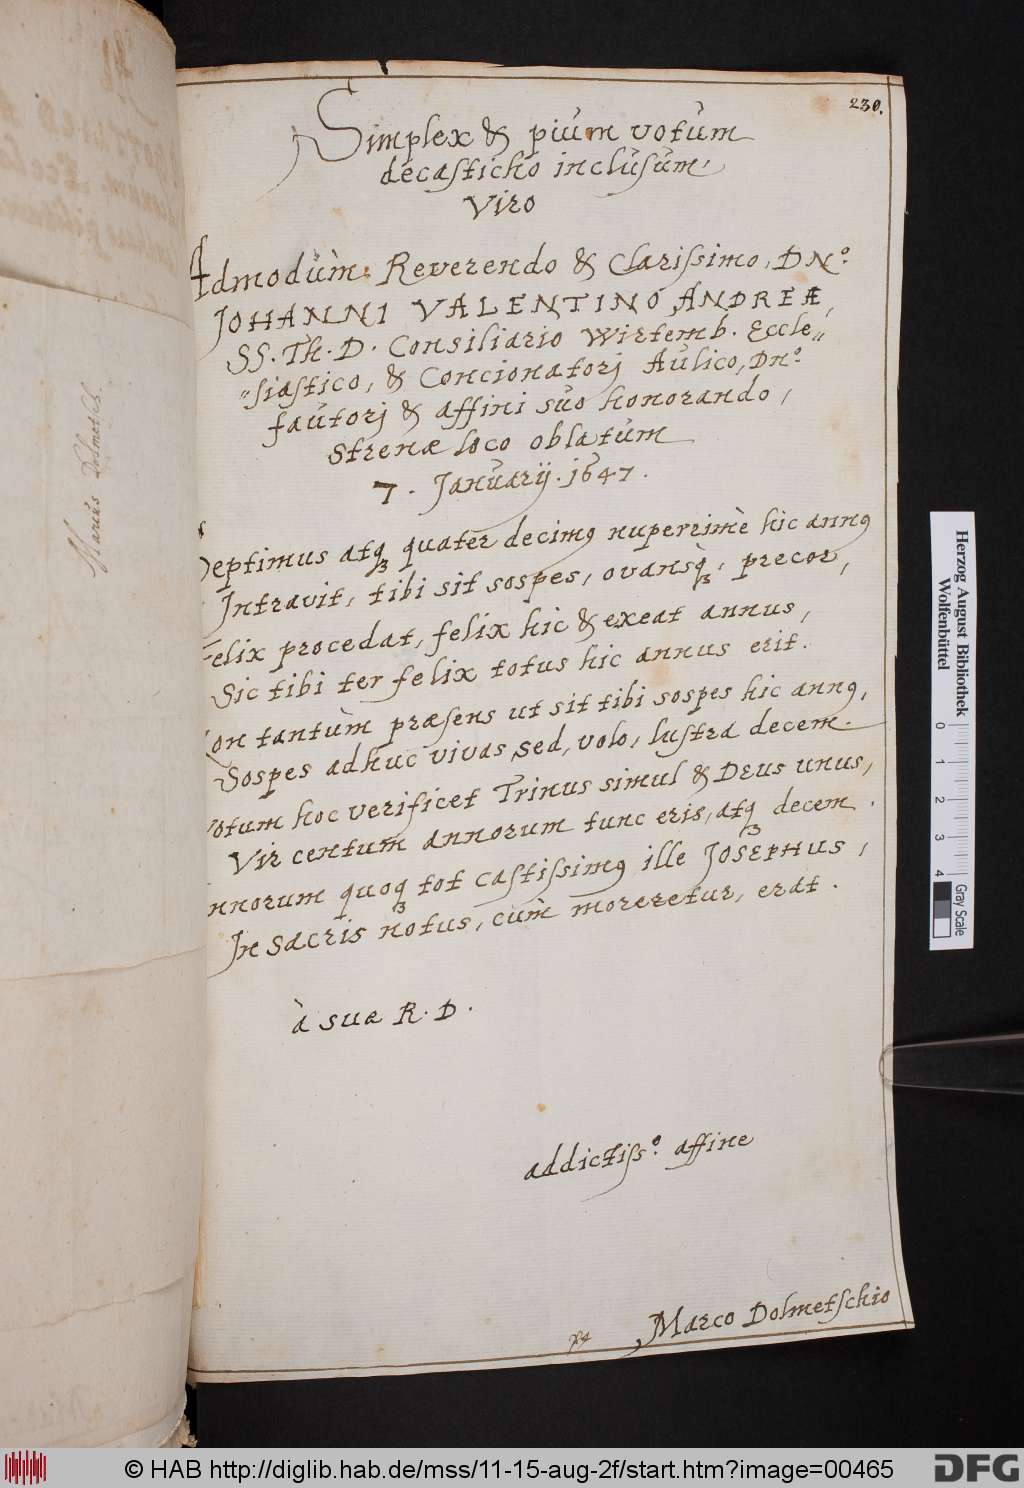 230.
Simplex & pium votum
decasticho inclusum
Viro
Admodùm Reverendo & Clarissimo, DN.o
JOHANNI VALENTINO ANDREÆ,
SS. Th. D. Consiliario Wirtemb. Eccle„
„siastico, & Concionatorj Aulico, Dn.o
fautorj & affini suo honorando,
Strenæ loco oblatum
7. Januarij. 1647.
Septimus atq3 quater decimg nuperrimè hic anng
Intravit, tibi sit sospes, ovansq̀3, precor,
Felix procedat, felix hic & exeat annus,
Sic tibi ter felix totus hic annus erit.
Non tantùm præsens ut sit tibi sospes hic anng,
Sospes adhuc vivas sed, volo, lustra decem.
Votum hoc verificet Trinus simul & DEus unus,
Vir centum annorum tunc eris, atq3 decem.
nnorum quoq3 tot castissimg ille JOSEPHUS,
In sacris notus, cùm moreretur, erat.
à sua R. D.
addictiss.o affine
Marco Dolmetschio
Marcus Dolmetsch.
Herzog August Bibliothek
Wolfenbüttel
0 1 2 3 4
Gray Scale
© HAB http://diglib.hab.de/mss/11-15-aug-2f/start.htm?image=00465
DFG